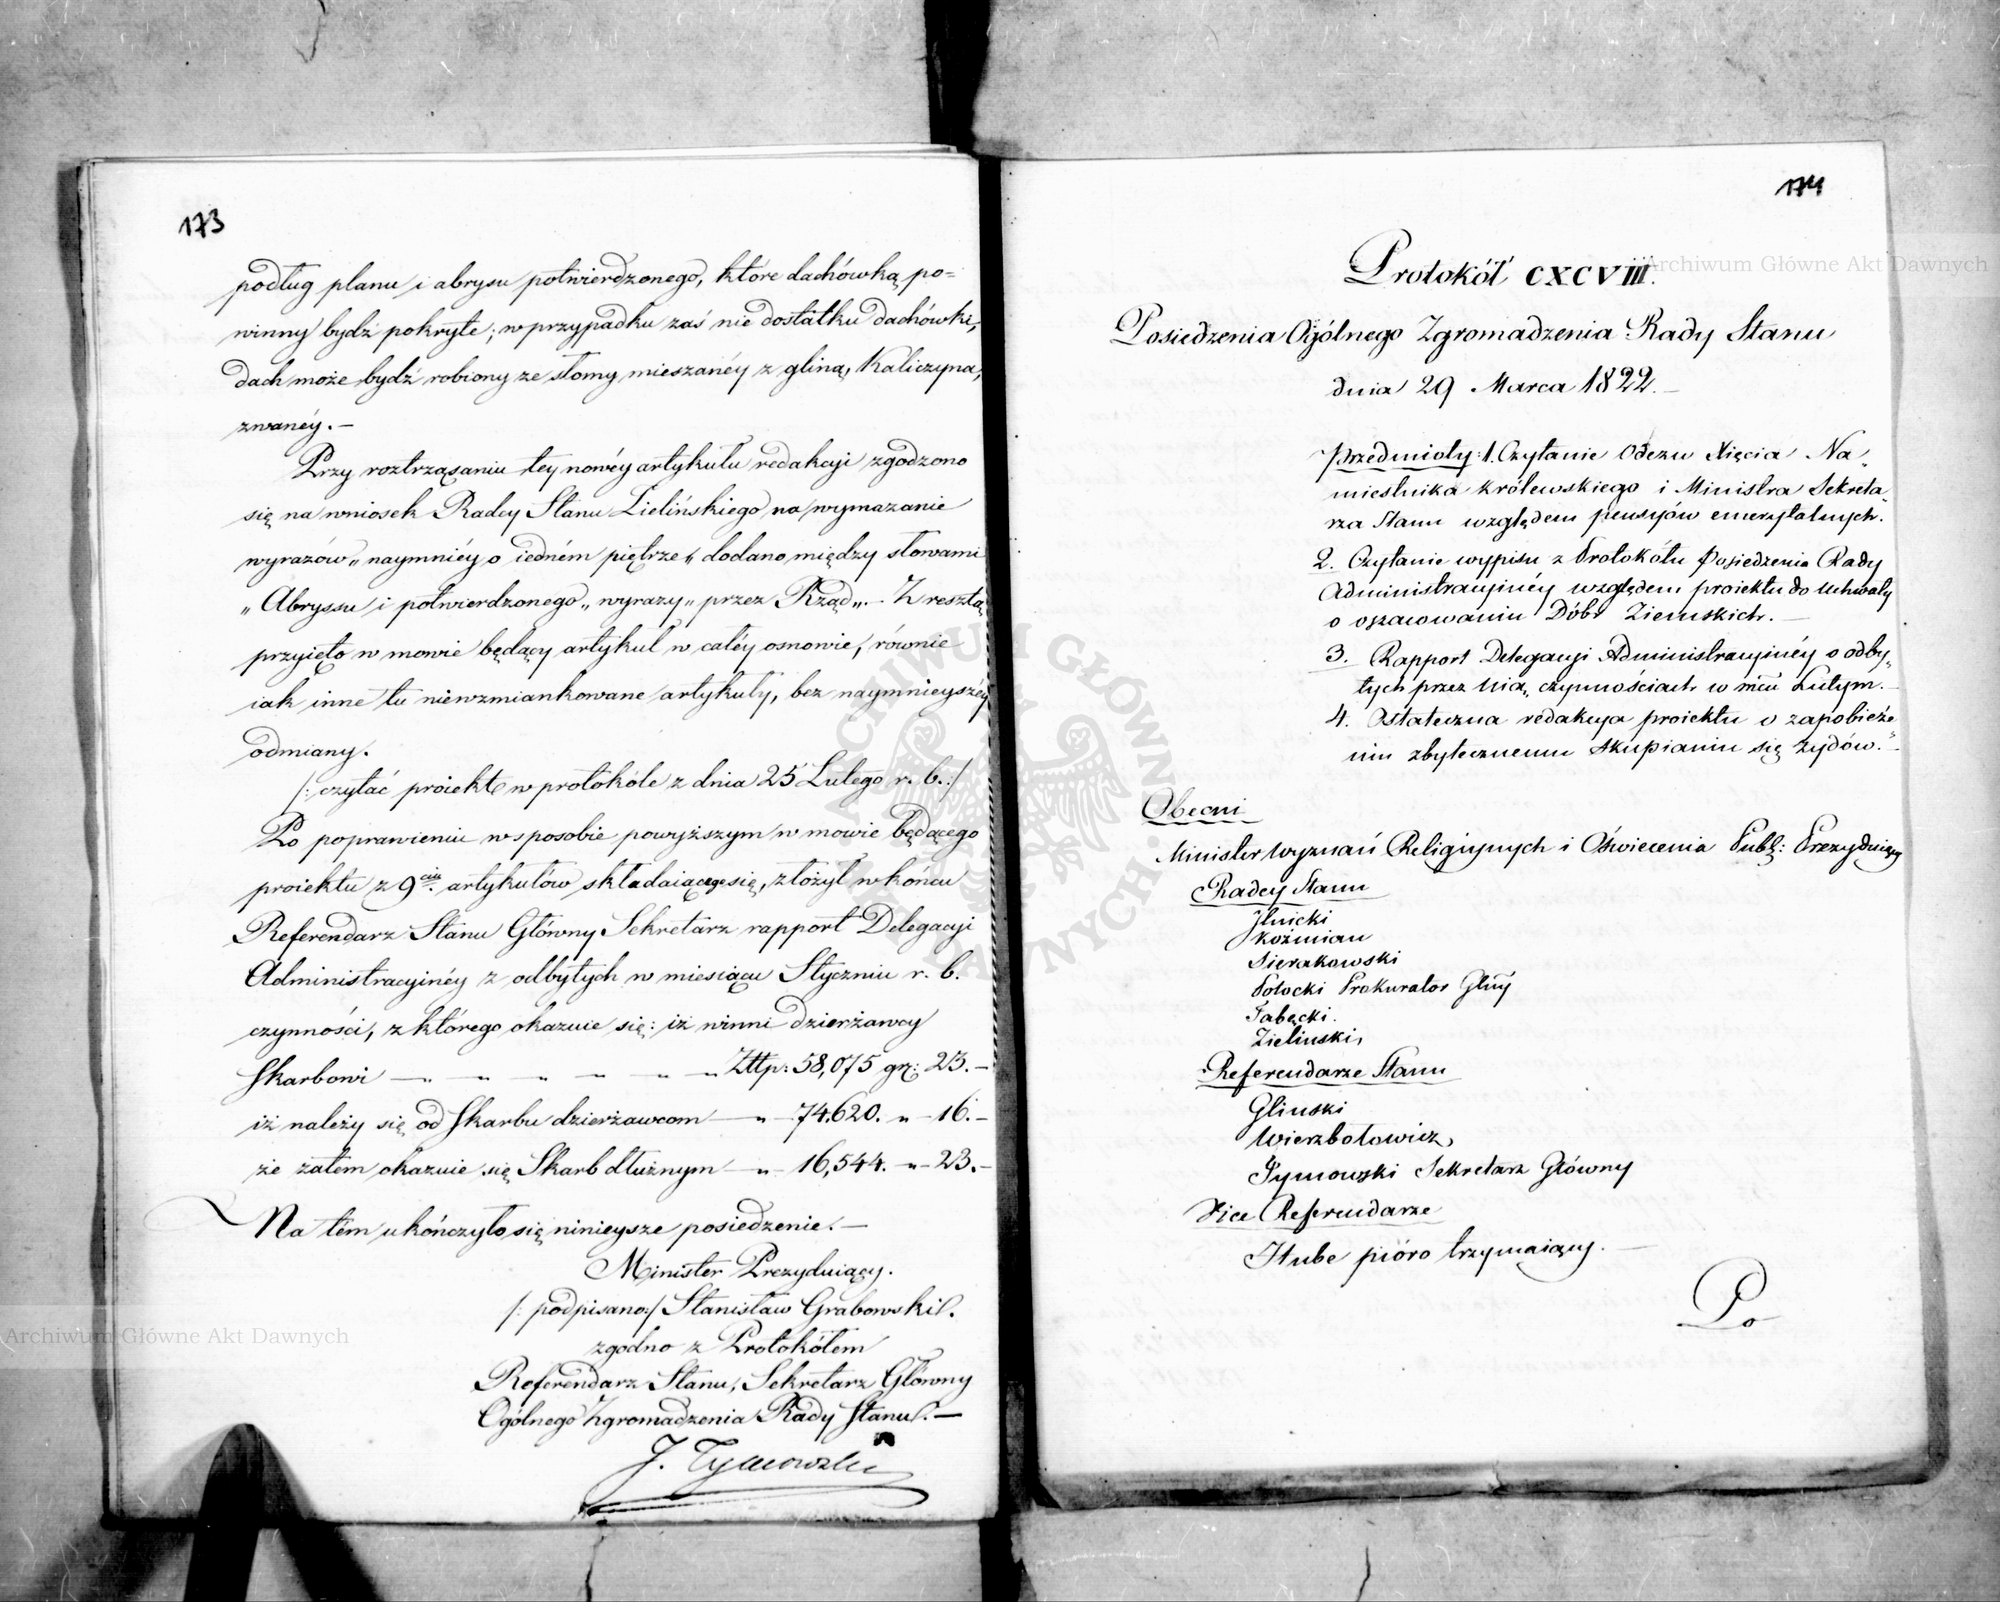 173
podług planu i abrysu potwierdzonego, które dachówką po=
winny bydź pokryte; w przypadku zaś nie dostatku dachówki,
dach może bydź robiony ze słomy mieszanéy z gliną, Kaliczyna,
zwanéy. —
Przy roztrząsaniu tey nowéy artykułu redakcyi zgodzono
się na wniosek Radcy Stanu Zielińskiego na wymazanie
wyrazów „naymniéy o iedném piętrze„ dodano między słowami
„Abryssu i potwierdzonego„ wyrazy „przez Rząd„. — Z resztą
przyięto w mowie będący artykuł w całéy osnowie, równie
iak inne tu niewzmiankowane artykuły, bez naymnieyszéy
odmiany.
/: czytać proiekt w protokóle z dnia 25 Lutego r. b. :/
Po poprawieniu w sposobie powyższym w mowie będącego
proiektu z 9ciu artykułów składaiącegosię, złożył w końcu
Referendarz Stanu Główny Sekretarz rapport Delegacyi
Administracyinéy z odbytych w miesiącu Styczniu r. b.
czynności, z którego okazuie się: iż winni dzierżawcy
Skarbowi — „ „ „ „ „ „ Złtp: 58,075 gr: 23. —
iż należy się od Skarbu dzierżawcom — „ — 74.620. „ — 16. —
że zatem okazuie się Skarb dłużnym — „ — 16,544. „ — 23. —
Na tém ukończyło się ninieysze posiedzenie. —
Minister Prezyduiący.
/: podpisano :/ Stanisław Grabowski.
zgodno z Protokółem
Referendarz Stanu, Sekretarz Główny
Ogólnego Zgromadzenia Rady Stanu. —
J. Tymowski
174
Protokół CXCVIII.
Posiedzenia Ogólnego Zgromadzenia Rady Stanu
dnia 29 Marca 1822. —
Przedmioty: 1. Czytanie Odezw Xięcia Na„
miestnika Królewskiego i Ministra Sekreta„
rza Stanu względem pensyów emerytalnych.
2. Czytanie wypisu z Protokółu Posiedzenia Rady
Administracyinéy względem proiektu do Uchwały
o oszacowaniu Dóbr Ziemskich. —
3. Rapport Delegacyi Administracyinéy o odby„
tych przez nią, czynnościach w mcu Lutym. —
4. Ostateczna redakcya proiektu o zapobieże„
niu zbytecznemu skupianiu się żydów. —
Obecni
Minister Wyznań Religiynych i Oświecenia Publ: Prezyduiący
Radcy Stanu
Jlnicki
Koźmian
Sierakowski
Potocki Prokurator Głny
Tabęcki.
Zieliński,
Referendarze Stanu
Gliński
Wierzbołowicz,
Tymowski Sekretarz Główny
Vice Referendarze
Hube pióro trzymaiący. —
Po
Archiwum Główne Akt Dawnych
Archiwum Główne Akt Dawnych